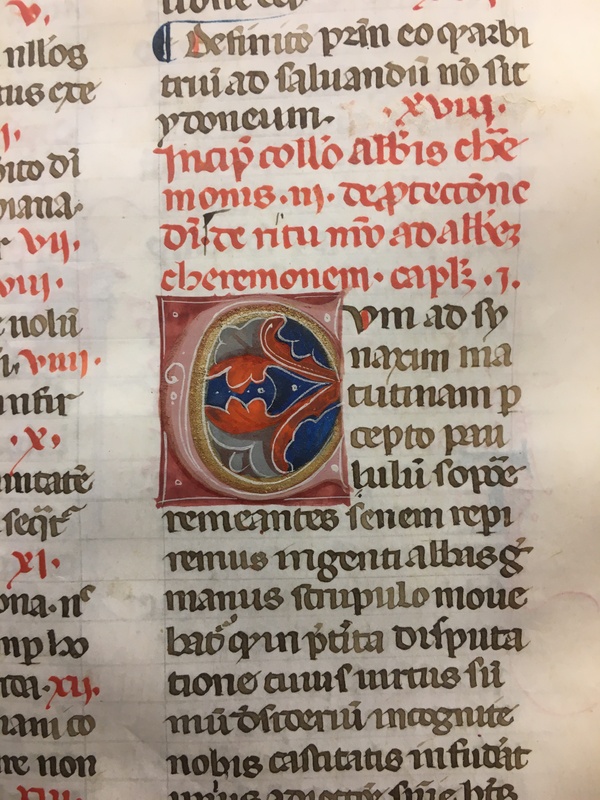 v.
nllos
tus exe
dico di
viana.
vii.
viii.
e nolũ
viiii.
infir
.x.
unitatẽ
seqit᷑
xi.
ona. nᶜ
mp ho
xii.
iani co
ne non
xiii.
Definitõ prĩn co q arbi
triũ ad saluandũ nõ sit
ydoneum. .xviii.
Incip̃ collõ abb̃is chẽ
monis .iii. de ꝓtectõne
di. de ritu mõ ad abbẽ
cheremonem. capł .i.
Cvm ad sy
naxim ma
tutinam p̱
cepto pau
lulũ sopoẽ
remeantes senem repi
remus ingenti abbas g̃
manus scrupulo moue
bat᷑ q in p̃tita disputa
tione cuius uirtus sũ
mũ dsideriũ incognite
nobis castitatis infudãt